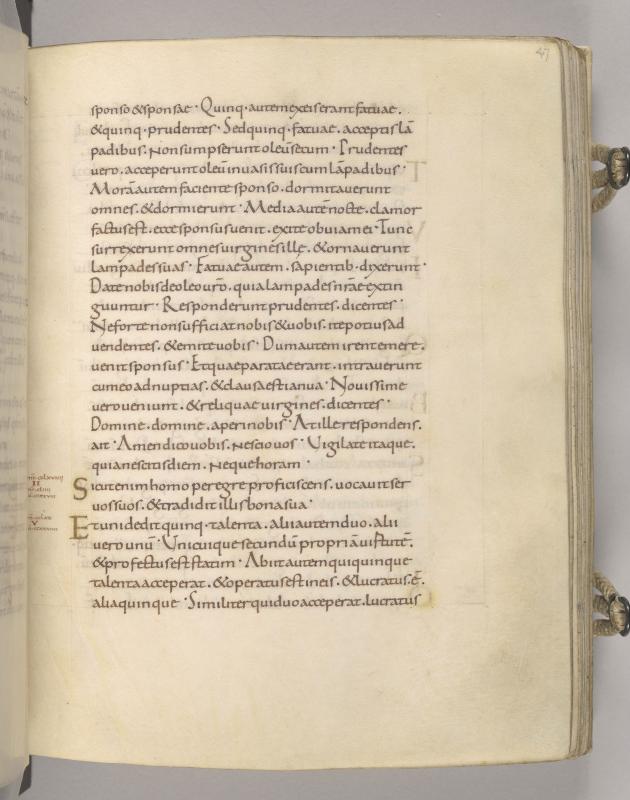 47
sponso & sponsae · Quinq · autem ex eis erant fatuae .
& quinq · prudentes · Sed quinq · fatuae . acceptis lā
padibus . non sumpserunt oleū secum · Prudentes
vero . acceperunt oleū in vasis suis cum lāpadibus ·
Morā autem faciente sponso . dormitaverunt
omnes . & dormierunt · Media autē nocte . clamor
factus est . ecce sponsus venit . exite obviam ei · Tunc
surrexerunt omnes virgines ille . & ornaverunt
lampades suas · Fatuae autem . sapientib · dixerunt ·
Date nobis de oleo vr̄o . quia lampades nr̄ae extin
guuntur · Responderunt prudentes . dicentes ·
Ne forte non sufficiat nobis & vobis . ite potius ad
vendentes . & emite vobis · Dum autem irent emere .
venit sponsus · Et quae paratae erant . intraverunt
cum eo ad nuptias . & clausa est ianua · Novissime
vero veniunt . & reliquae virgines . dicentes ·
Domine . domine . aperi nobis · At ille respondens .
ait · Amen dico vobis . nescio vos · Vigilate itaque .
quia nescitis diem . neque horam ·
Sicut enim homo peregre proficiscens . vocavit ser
vos suos . & tradidit illis bona sua ·
Et uni dedit quinq · talenta . alii autem duo . alii
vero unū · Unicuique secundū propriā virtutē .
& profectus est statim · Abiit autem qui quinque
talenta acceperat . & operatus est in eis . & lucratus . ē .
alia quinque · Similiter qui duo acceperat . lucratus